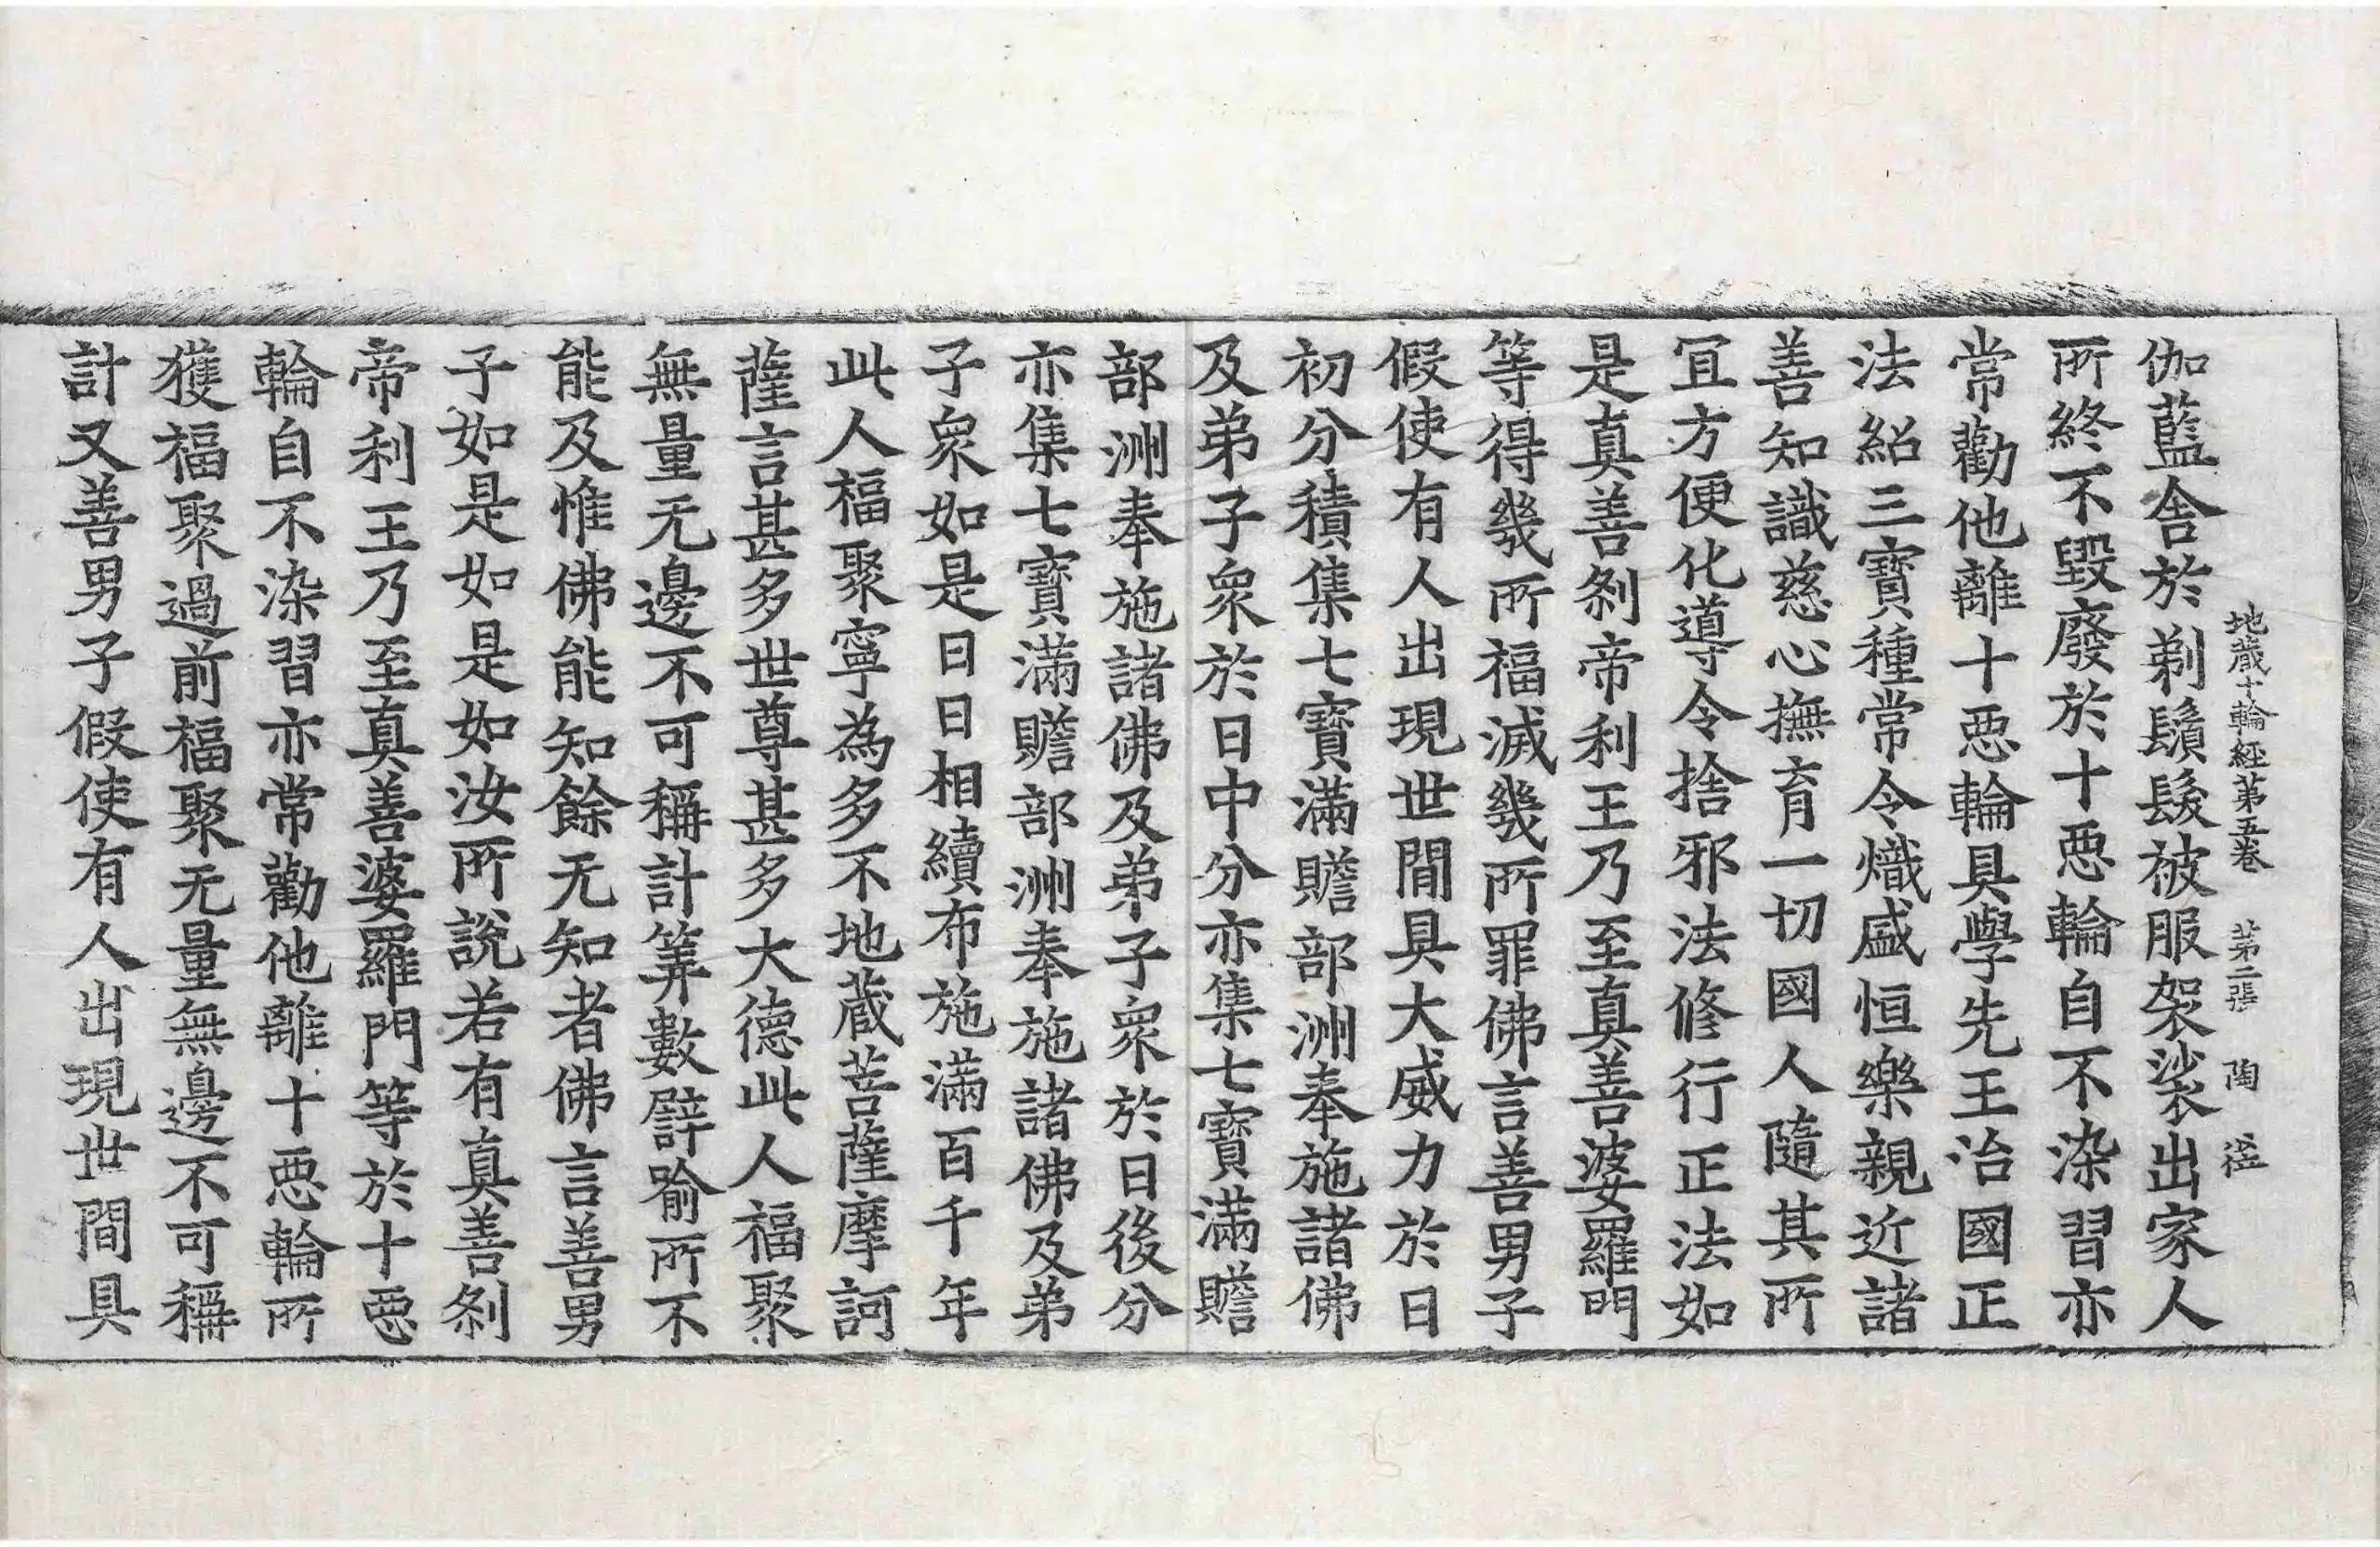 地藏十輪經第五卷 第二張 陶
伽藍舍於剃鬚髮被服袈裟出家人
所終不毀廢於十惡輪自不染習亦
常勸他離十惡輪具學先王治國正
法紹三寶種常令熾盛恒樂親近諸
善知識慈心撫育一切國人隨其所
冝方便化導令捨邪法修行正法如
是真善剎帝利王乃至真善婆羅門
等得幾所福滅幾所罪佛言善男子
假使有人出現世間具大威力於日
初分積集七寶滿贍部洲奉施諸佛
及弟子衆於日中分亦集七寶滿贍
部洲奉施諸佛及弟子衆於日後分
亦集七寶滿贍部洲奉施諸佛及弟
子衆如是日日相續布施滿百千年
此人福聚寧為多不地藏菩薩摩訶
薩言甚多世尊甚多大德此人福聚
無量无邊不可稱計筭數譬喻所不
能及惟佛能知餘无知者佛言善男
子如是如是如汝所說若有真善剎
帝利王乃至真善婆羅門等於十惡
輪自不染習亦常勸他離十惡輪所
獲福聚過前福聚无量無邊不可稱
計又善男子假使有人出現世間具